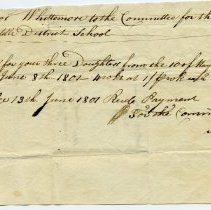 or Whittemore to the Committee for th
ddle District School
for your three Daughters from the 10 of
June 8th 1801 weeks at 1/ pr
13th June 1801 Recd Payment
for the Comm